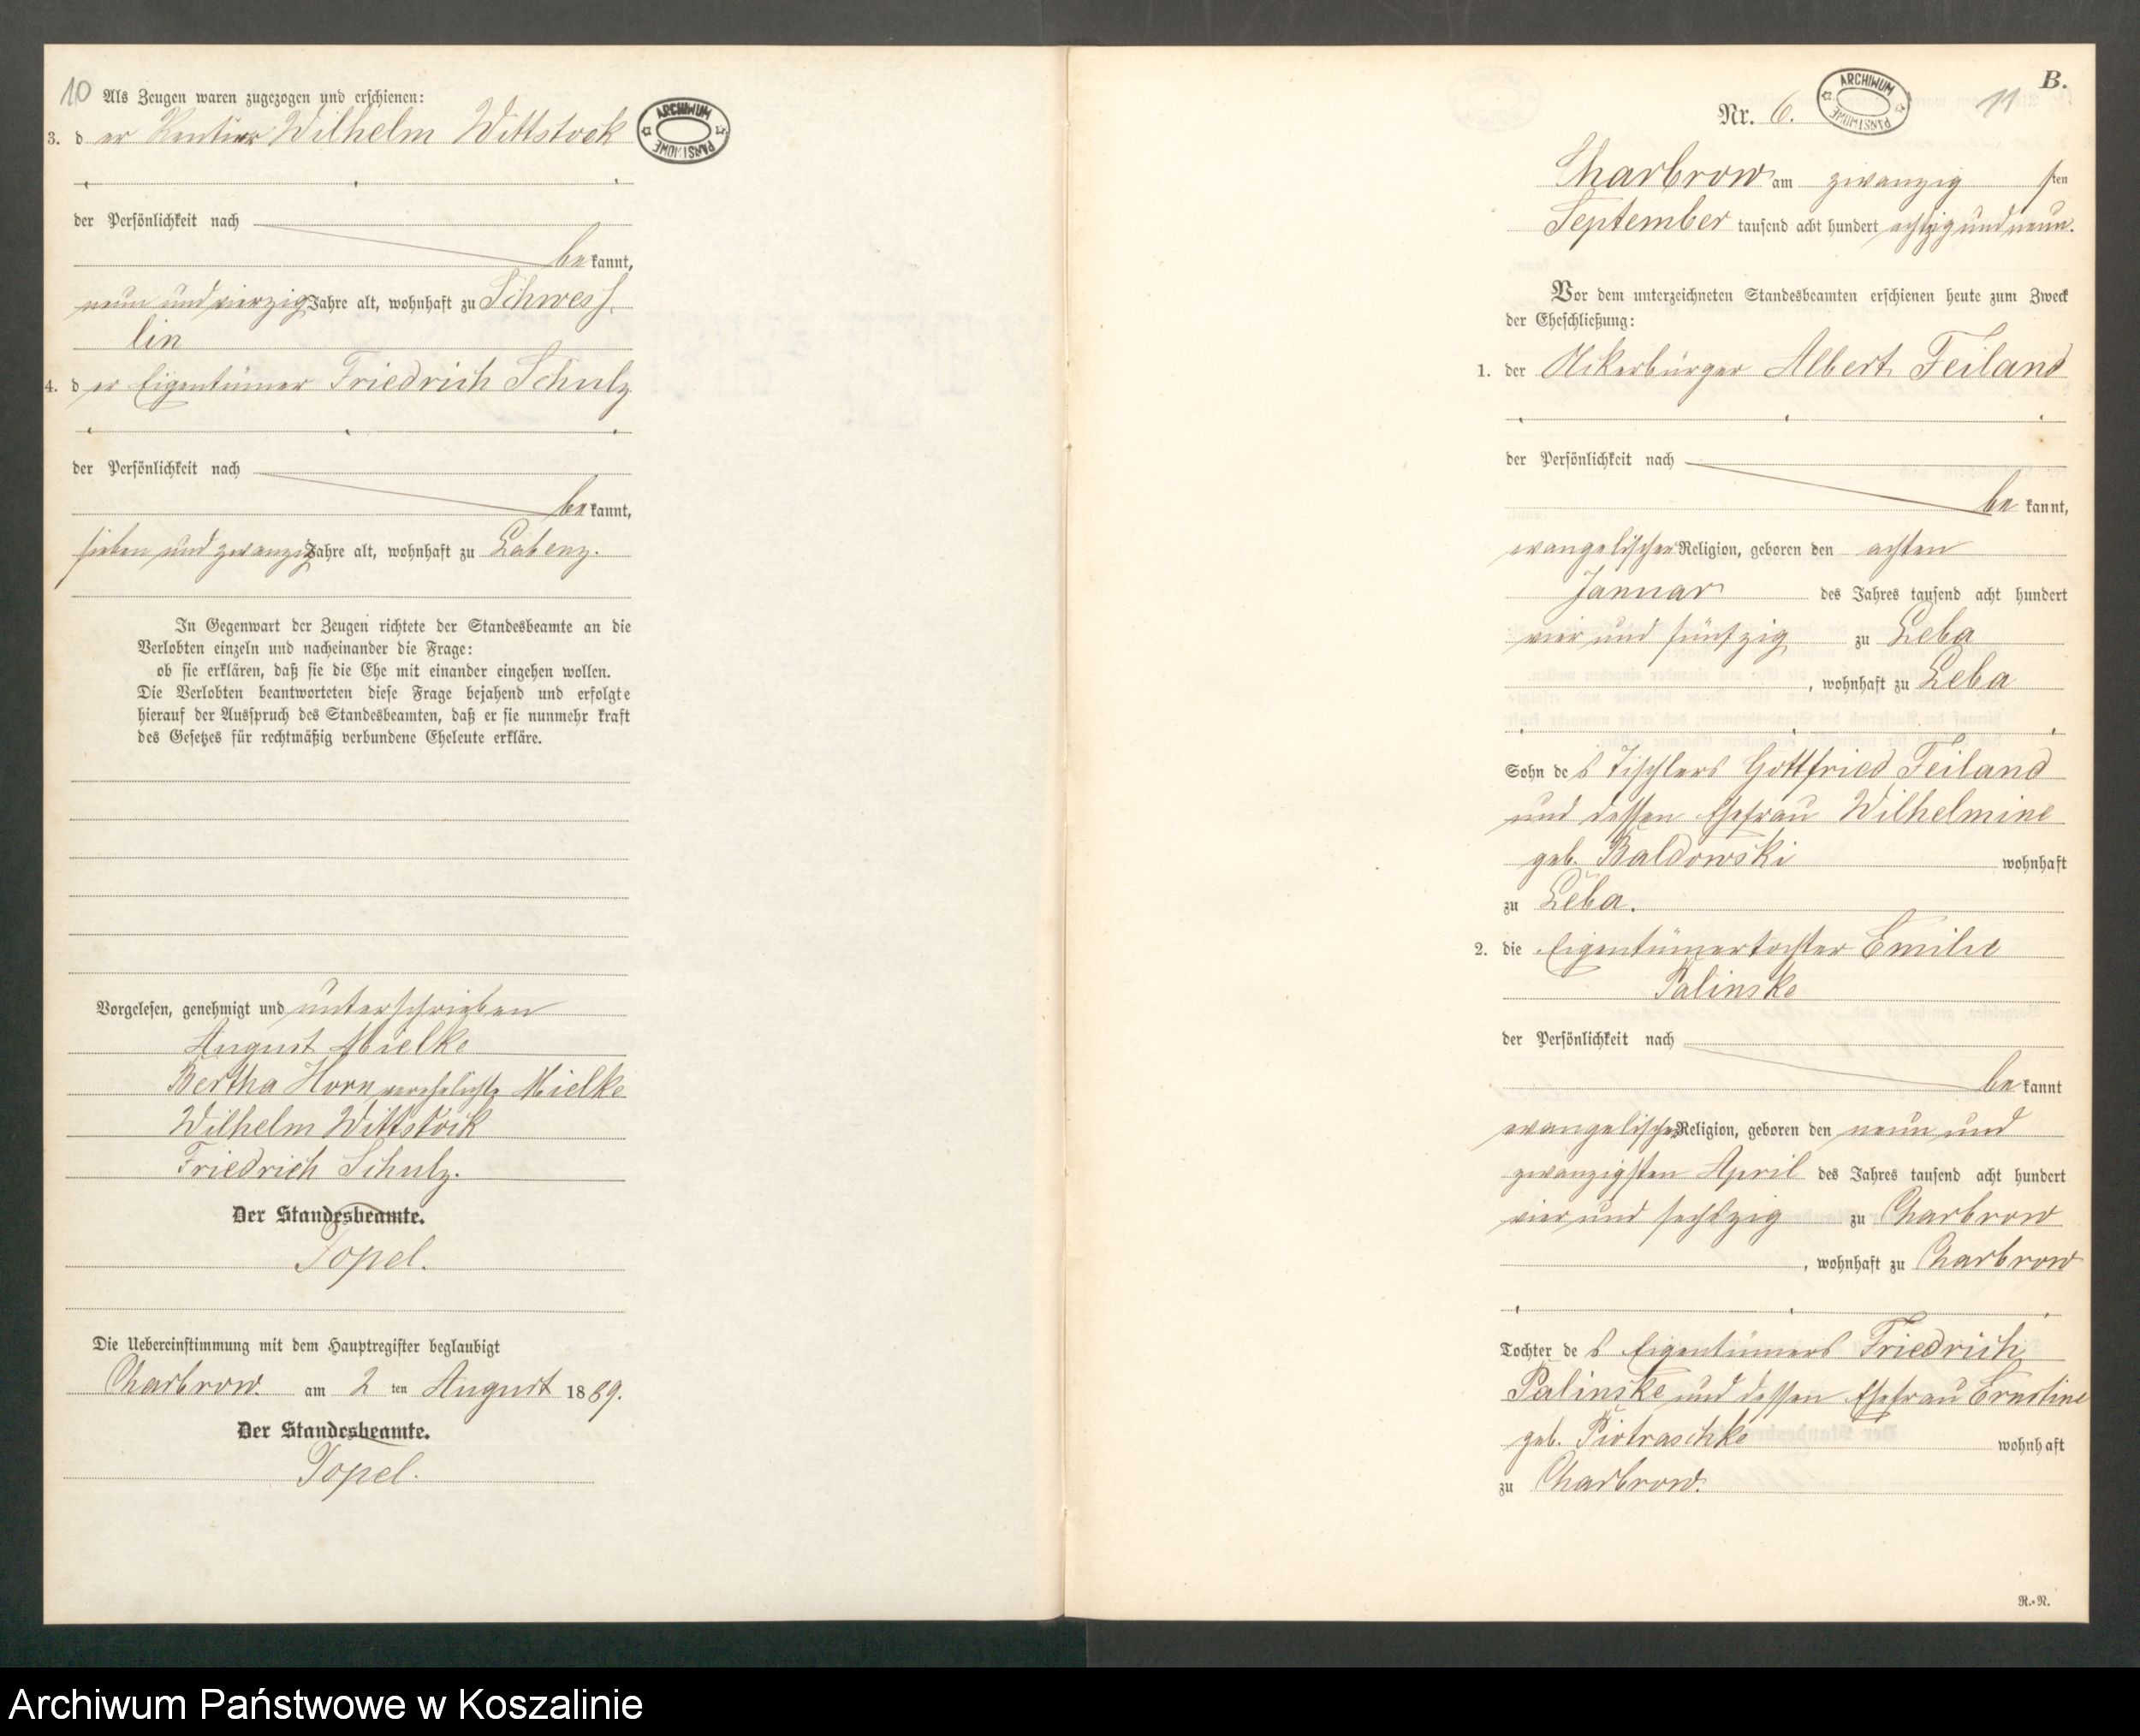 10
Als Zeugen waren zugezogen und erschienen:
3. der Rentier Wilhelm Wittstock
der Persönlichkeit nach
bekannt,
neun und vierzig Jahre alt, wohnhaft zu Schwess
lin
4. der Eigentümer Friedrich Schulz
der Persönlichkeit nach
bekannt,
sieben und zwanzig Jahre alt, wohnhaft zu Labenz.
In Gegenwart der Zeugen richtete der Standesbeamte an die
Verlobten einzeln und nacheinander die Frage:
ob sie erklären, daß sie die Ehe mit einander eingehen wollen.
Die Verlobten beantworteten diese Frage bejahend und erfolgte
hierauf der Ausspruch des Standesbeamten, daß er sie nunmehr kraft
des Gesetzes für rechtmäßig verbundene Eheleute erkläre.
Vorgelesen, genehmigt und unterschrieben
August Mielke
Bertha Horn verehelichte Mielke
Wilhelm Wittstock
Friedrich Schulz.
Der Standesbeamte.
Topel.
Die Uebereinstimmung mit dem Hauptregister beglaubigt
Charbrow am 2 ten August 1889.
Der Standesbeamte.
Topel.
ARCHIWUM PAŃSTWOWE
B.
11
Nr. 6.
ARCHIWUM PAŃSTWOWE
Charbrow am zwanzig sten
September tausend acht hundert achtzig und neun.
Vor dem unterzeichneten Standesbeamten erschienen heute zum Zweck
der Eheschließung:
1. der Ackerbürger Albert Feiland
der Persönlichkeit nach
bekannt,
evangelischer Religion, geboren den achten
Januar des Jahres tausend acht hundert
vier und fünfzig zu Leba
, wohnhaft zu Leba
Sohn des Tischlers Gottfried Feiland
und dessen Ehefrau Wilhelmine
geb. Baldowski wohnhaft
zu Leba.
2. die Eigentümertochter Emilie
Palinske
der Persönlichkeit nach
bekannt
evangelischer Religion, geboren den neun und
zwanzigsten April des Jahres tausend acht hundert
vier und sechszig zu Charbrow
, wohnhaft zu Charbrow
Tochter des Eigentümers Friedrich
Palinske und dessen Ehefrau Ernstine
geb. Piotraschke wohnhaft
zu Charbrow.
R.-R.
Archiwum Państwowe w Koszalinie